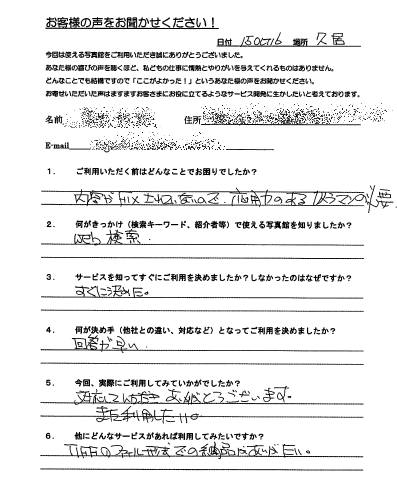 お客様の声をお聞かせください！
日付 15Oct16 場所 久居
今回は使える写真館をご利用いただき誠にありがとうございました。
あなた様の喜びの声を聴くほど、私どもの仕事に情熱とやりがいを与えてくれるものはありません。
どんなことでも結構ですので「ここがよかった！」というあなた様の声をお聞かせください。
お寄せいただいた声はますますお客さまにお役に立てるようなサービス開発に生かしたいと考えております。
名前 住所
E-mail
1． ご利用いただく前はどんなことでお困りでしたか？
内容がFIXされないので、応用力のあるカメラマンが必要
2． 何がきっかけ（検索キーワード、紹介者等）で使える写真館を知りましたか？
Web 検索．
3． サービスを知ってすぐにご利用を決めましたか？しなかったのはなぜですか？
すぐに決めた。
4． 何が決め手（他社との違い、対応など）となってご利用を決めましたか？
回答が早い．
5． 今回、実際にご利用してみていかがでしたか？
対応していただき ありがとうございます。
また利用したい。
6． 他にどんなサービスがあれば利用してみたいですか？
のファイル形式での納品がありがたい。